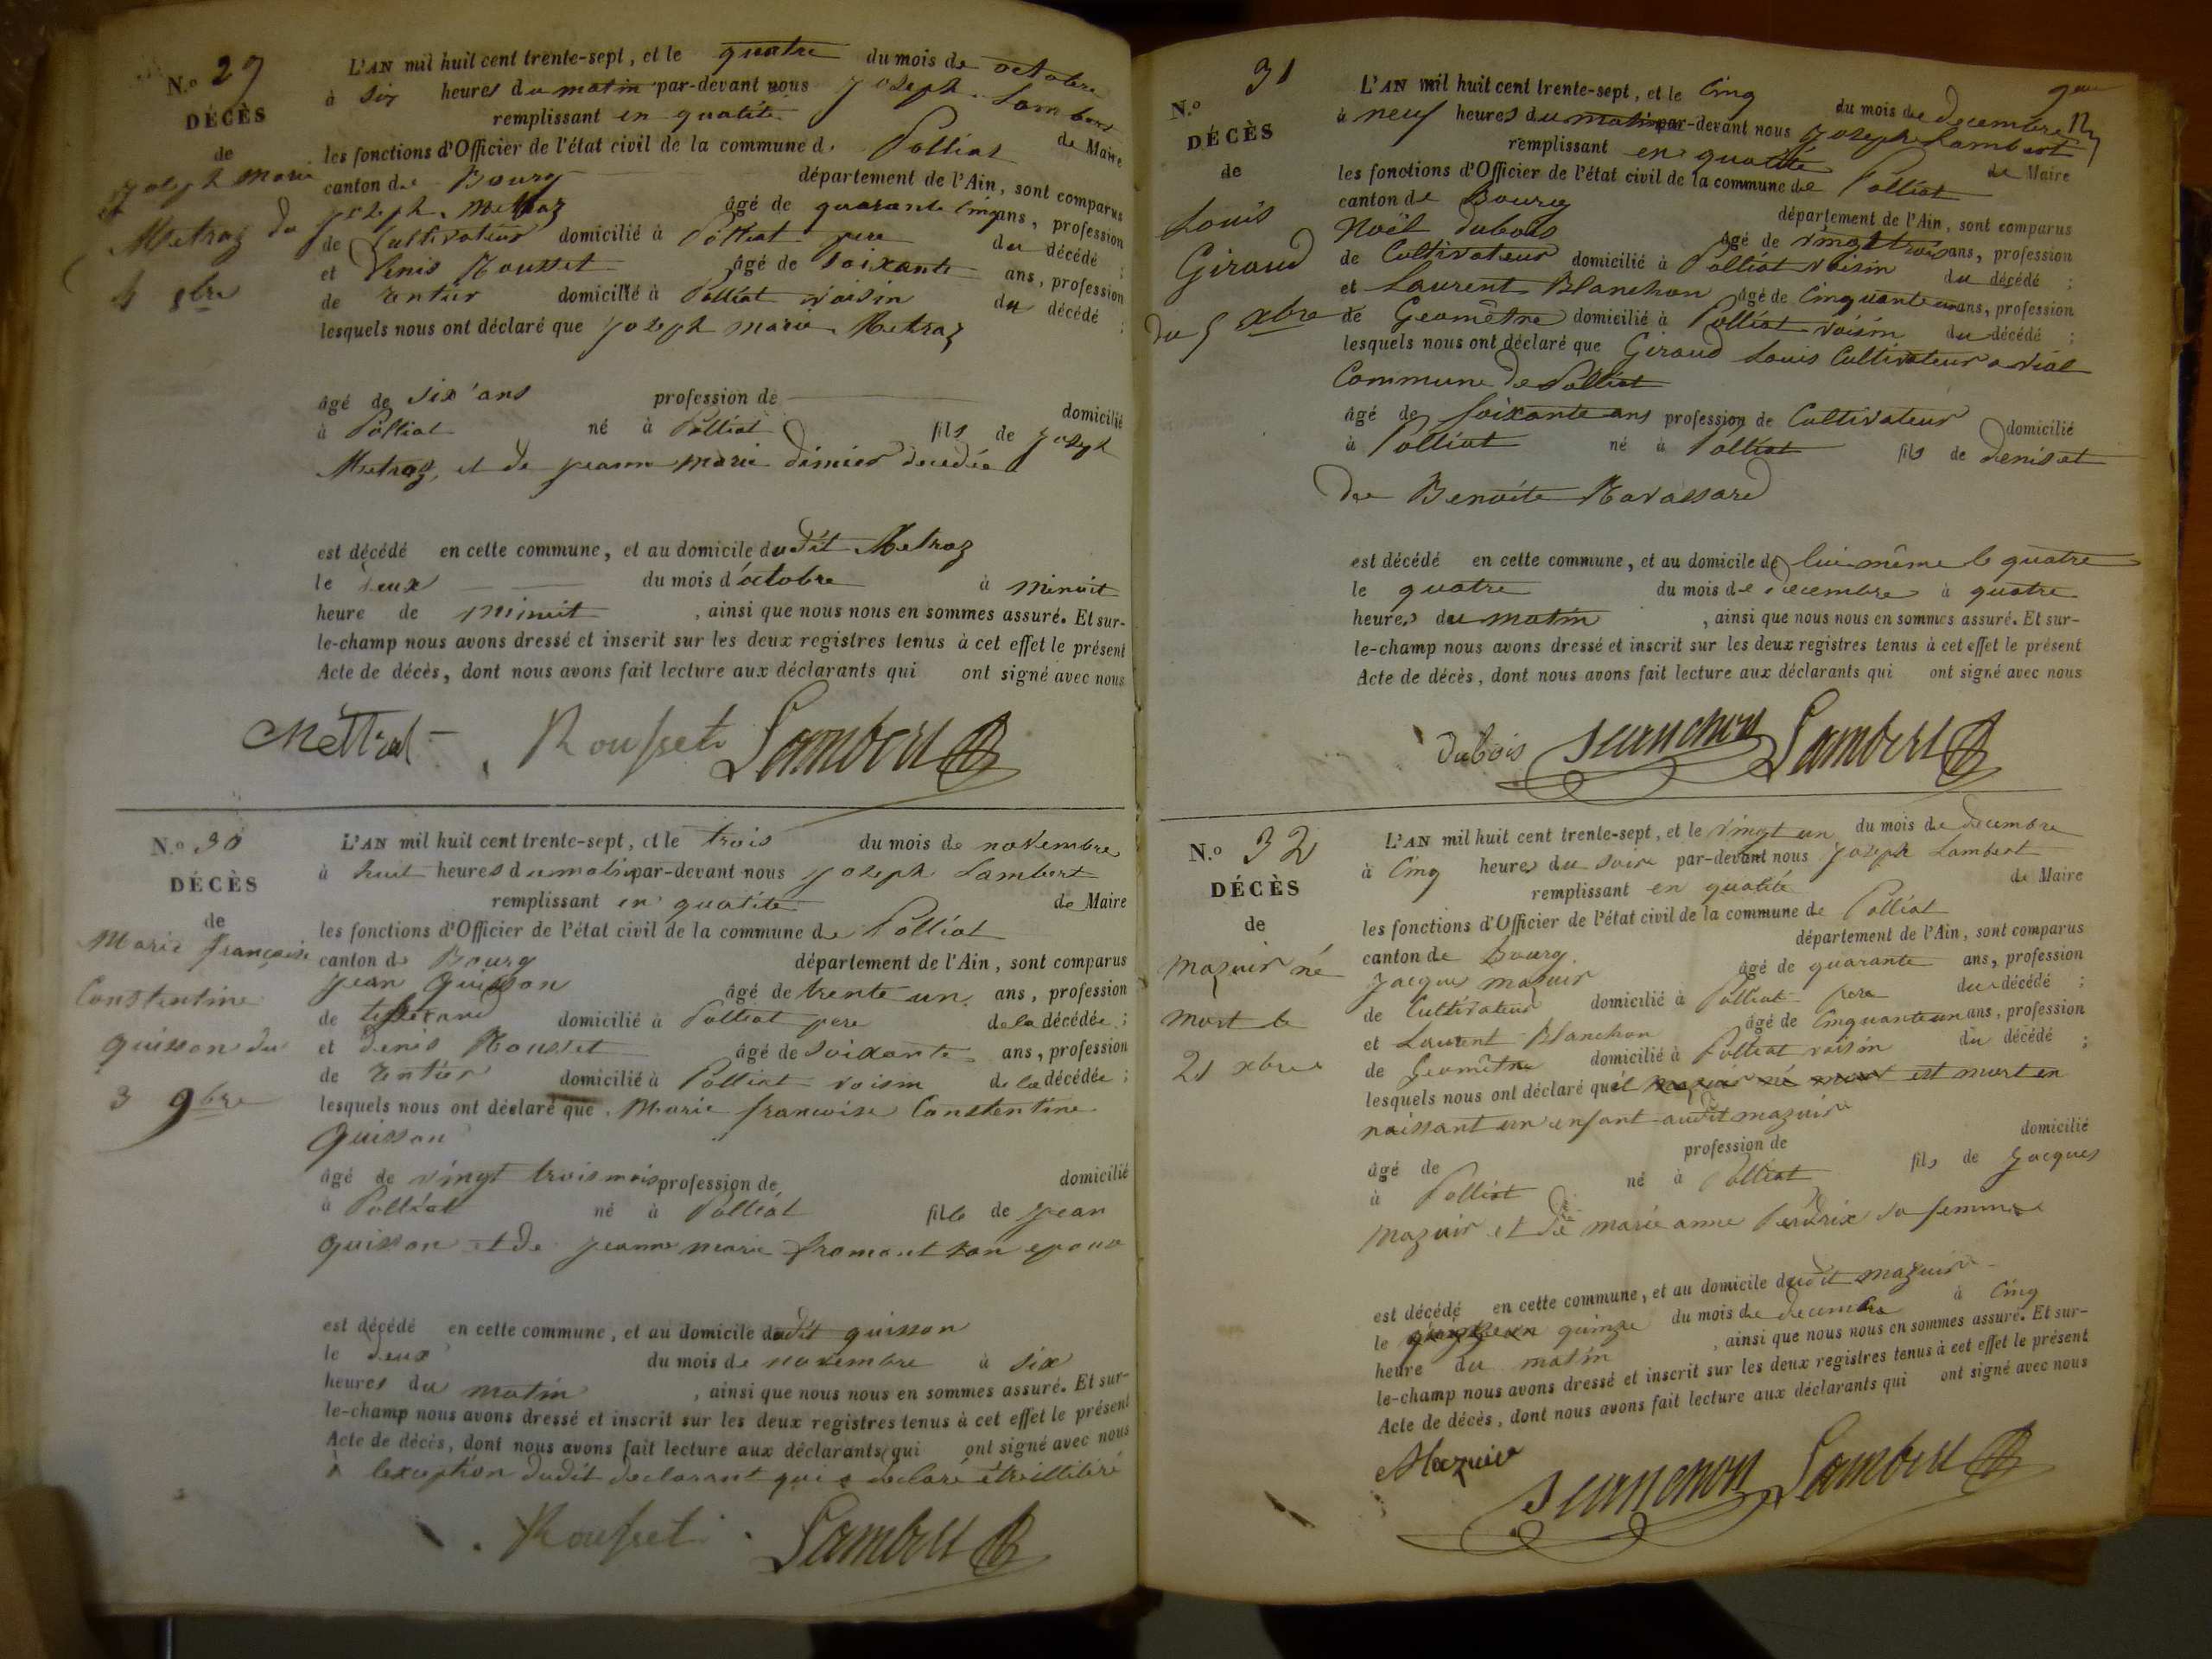 N.o 29
DÉCÈS
de
joseph marie
Metraz du
4 8bre
L'AN mil huit cent trente-sept, et le quatre du mois de octobre
à six heures du matin par-devant nous joseph Lambert
remplissant en qualité de Maire
les fonctions d'Officier de l'état civil de la commune de Polliat
canton de Bourg département de l'Ain, sont comparus
joseph Metraz âgé de quarante cinq ans, profession
de Cultivateur domicilié à Polliat pere du décédé ;
et Denis Rousset âgé de soixante ans, profession
de rentier domicilié à Polliat voisin du décédé ;
lesquels nous ont déclaré que joseph marie Metraz
âgé de six ans profession de domicilié
à Polliat né à Polliat fils de joseph
Metraz, et de jeanne marie dimier decedée
est décédé en cette commune, et au domicile dudit Metraz
le deux du mois d'octobre à minuit
heure de minuit , ainsi que nous nous en sommes assuré. Et sur-
le-champ nous avons dressé et inscrit sur les deux registres tenus à cet effet le présent
Acte de décès, dont nous avons fait lecture aux déclarants qui ont signé avec nous
Mettral Rousset Lambert
N.o 30
DÉCÈS
de
Marie françoise
Constentine
guisson du
3 9bre
L'AN mil huit cent trente-sept, et le trois du mois de novembre
à huit heures du matin par-devant nous joseph Lambert
remplissant en qualité de Maire
les fonctions d'Officier de l'état civil de la commune de Polliat
canton de Bourg département de l'Ain, sont comparus
jean guisson âgé de trente un ans, profession
de tisserand domicilié à Polliat pere de la décédée ;
et denis Rousset âgé de soixante ans, profession
de rentier domicilié à Polliat voisin de la décédée ;
lesquels nous ont déclaré que Marie francoise Constentine
guisson
âgé de vingt trois mois profession de domicilié
à Polliat né à Polliat fille de jean
guisson et de jeanne marie fromont son epouse
est décédé en cette commune, et au domicile dudit guisson
le deux du mois de novembre à six
heures du matin , ainsi que nous nous en sommes assuré. Et sur-
le-champ nous avons dressé et inscrit sur les deux registres tenus à cet effet le présent
Acte de décès, dont nous avons fait lecture aux déclarants qui ont signé avec nous
à lexception dudit declarant qui a declaré être illitéré
Rousset Lambert
N.o 31
DÉCÈS
de
Louis
Giraud
du 5 xbre
L'AN mil huit cent trente-sept, et le Cinq du mois de decembre
à neuf heures du matin par-devant nous joseph Lambert
remplissant en qualité de Maire
les fonctions d'Officier de l'état civil de la commune de Polliat
canton de Bourg département de l'Ain, sont comparus
Noël dubois âgé de vingt trois ans, profession
de Cultivateur domicilié à Polliat voisin du décédé ;
et Laurent Blanchon âgé de Cinquante un ans, profession
de Geomêtre domicilié à Polliat voisin du décédé ;
lesquels nous ont déclaré que Giraud Louis Cultivateur a vial
Commune de Polliat
âgé de soixante ans profession de Cultivateur domicilié
à Polliat né à Polliat fils de denis et
de Benoite Ravassard
est décédé en cette commune, et au domicile de lui même le quatre
le quatre du mois de decembre à quatre
heures du matin , ainsi que nous nous en sommes assuré. Et sur-
le-champ nous avons dressé et inscrit sur les deux registres tenus à cet effet le présent
Acte de décès, dont nous avons fait lecture aux déclarants qui ont signé avec nous
dubois Blanchon Lambert
N.o 32
DÉCÈS
de
mazuir né
mort le
21 xbre
L'AN mil huit cent trente-sept, et le vingt un du mois de decembre
à Cinq heures du soir par-devant nous joseph Lambert
remplissant en qualité de Maire
les fonctions d'Officier de l'état civil de la commune de Polliat
canton de Bourg. département de l'Ain, sont comparus
jacques mazuir âgé de quarante ans, profession
de Cultivateur domicilié à Polliat pere du décédé ;
et Laurent Blanchon âgé de Cinquante un ans, profession
de Geomêtre domicilié à Polliat voisin du décédé ;
lesquels nous ont déclaré quil mazuir né mort est mort en
naissant un enfant audit mazuir
âgé de profession de domicilié
à Polliat né à Polliat fils de jacques
mazuir et de marie anne Perdrix sa femme
est décédé en cette commune, et au domicile dudit mazuir
le quinze du mois de decembre à Cinq
heure du matin , ainsi que nous nous en sommes assuré. Et sur-
le-champ nous avons dressé et inscrit sur les deux registres tenus à cet effet le présent
Acte de décès, dont nous avons fait lecture aux déclarants qui ont signé avec nous
Mazuir
Blanchon Lambert